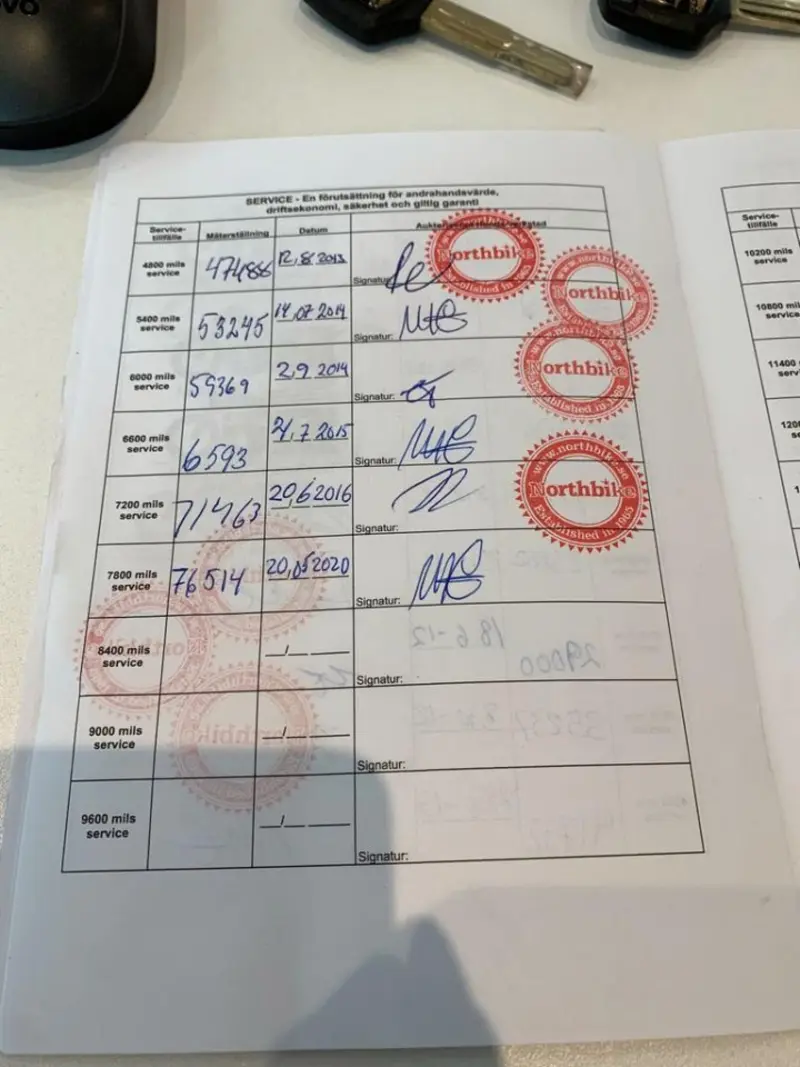 SERVICE - En förutsättning för andrahandsvärde,
driftsekonomi, säkerhet och giltig garanti
Service-
tillfälle
Mätarställning
Datum
Auktoriserad
4800 mils
service
47486
12,8 2013
Signatur:
Northbike
Established in 1965
5400 mils
service
53245
14,07 2014
Signatur:
www.northbike.se
Northbike
6000 mils
service
59369
2,9 2014
Signatur:
Northbike
Established in 1965
6600 mils
service
6593
21,7 2015
Signatur:
7200 mils
service
71463
20,6 2016
Signatur:
www.northbike.se
Northbike
Established in 1965
7800 mils
service
76514
20,05 2020
Signatur:
8400 mils
service
_/_ _
Signatur:
9000 mils
service
_/_ _
Signatur:
9600 mils
service
_/_ _
Signatur:
Service-
tillfälle
10200 mils
service
10800 mil
service
11400
servi